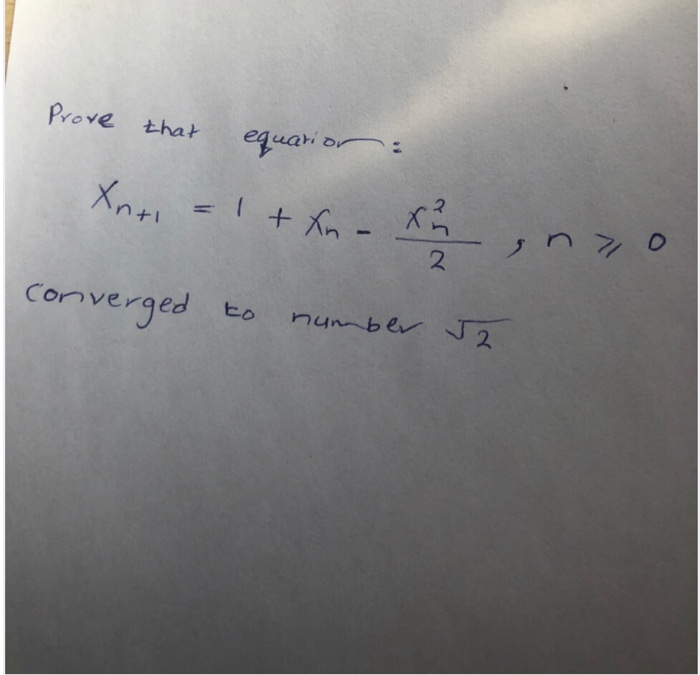 Prove that equation:
Xn+1 = 1 + Xn - Xn²/2 , n ⩾ 0
converged to number √2